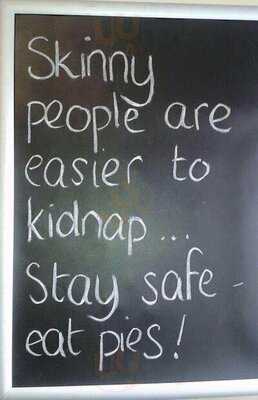 Skinny
people are
easier to
kidnap...
Stay safe -
eat pies!